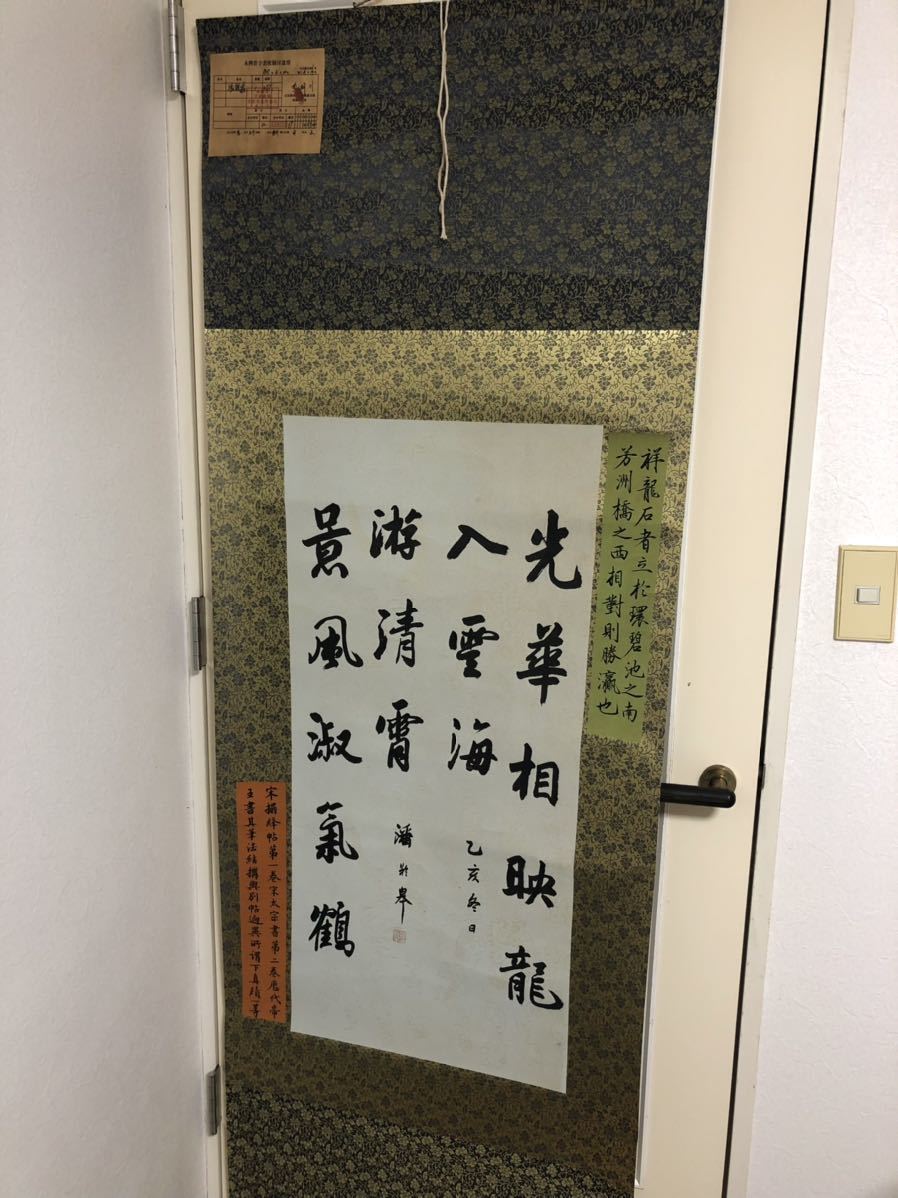 光華相映龍
入雲海
乙亥冬日
游清霄
潘齡皋
景風淑氣鶴
祥龍石者立於環碧池之南
芳洲橋之西相對則勝瀛也
宋搨絳帖第一卷宋太宗書第二卷歷代帝
王書其筆法結構與別帖迥異所謂下真蹟一等